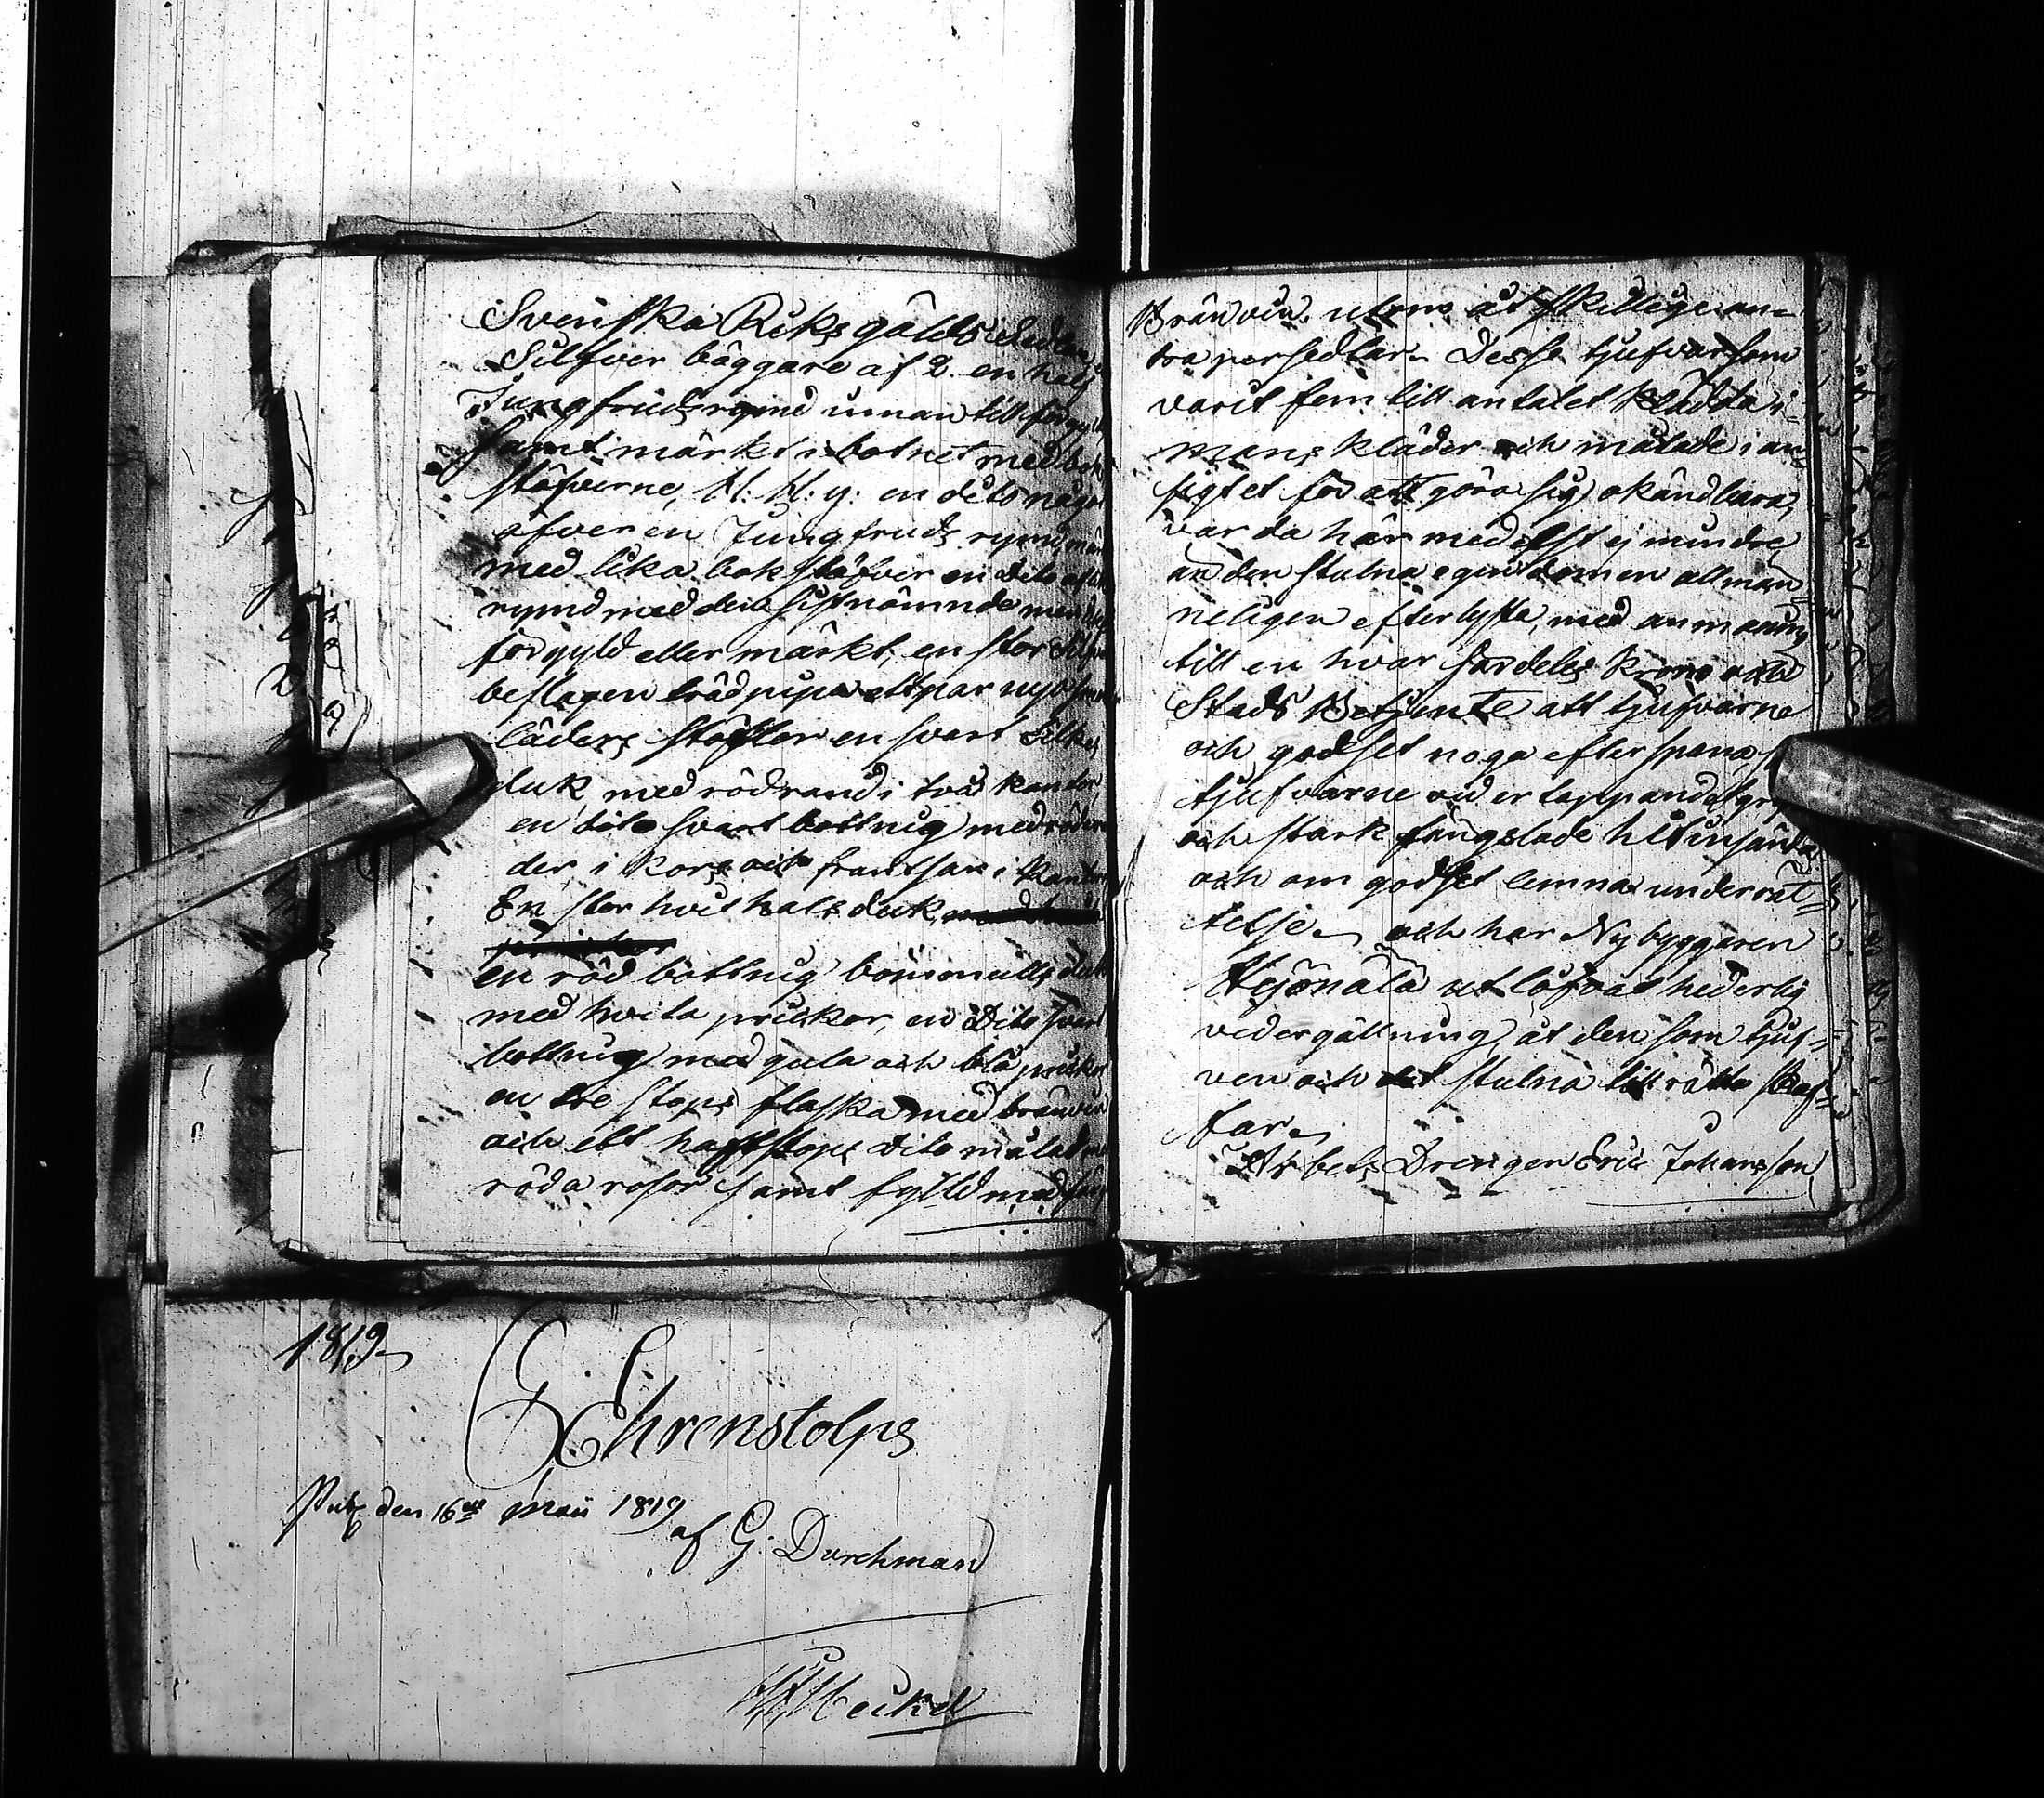 Svenska Riksgälds Sedlar
Silfver bäggare af 2. en half
Jungfruds rymd innan till förgyld
samt märkt i botnet med bok
stäfverne, H: H: y: en dito något
öfver en Jungfruds rymd, märkt
med lika bokstäfver en dito af
rymd med den sistnämnde men
förgyld eller märkt, en stor Silfver
beslagen trädpipa ett par nya
läders stöflor en svart Silkes
duk med röd rand i två kanter
en dito svart bottnig med
der i kors och frantsar i kanten
En stor hvit halsduk
en röd bottnig bommulls duk
med hvita prickor, en Dito svart
bottnig med gula och blå prickor
en tre stops flaska med bränvin
och ett halfstops Dito målad med
röda rosor samt fylld med
Bränvin utom åtskillige an-
dra persedlar. Desse tjufvar som
varit fem till antalet klädda i
mans kläder och målade i an-
sigtet för att göra sig okändbara,
varda härmedelst ej mindre
än den stulna egendomen allmän
neligen efterlyste, med anmaning
till en hvar särdeles Krono och
Stads Betjente att tjufvarne
och godset noga efterspana
tjufvarne vid ertappandet
och stark fängslade hit insända
och om godset lemna underrät-
telse. och har Nybyggaren
utlofvat hederlig
vedergällning åt den som tjuf-
ven och det stulna till rätta skaf-
far.
Arbets Drengen Eric Johansson
1819
G. Ehrenstolpe
Publ den 16de Maii 1819
af G. Durchman